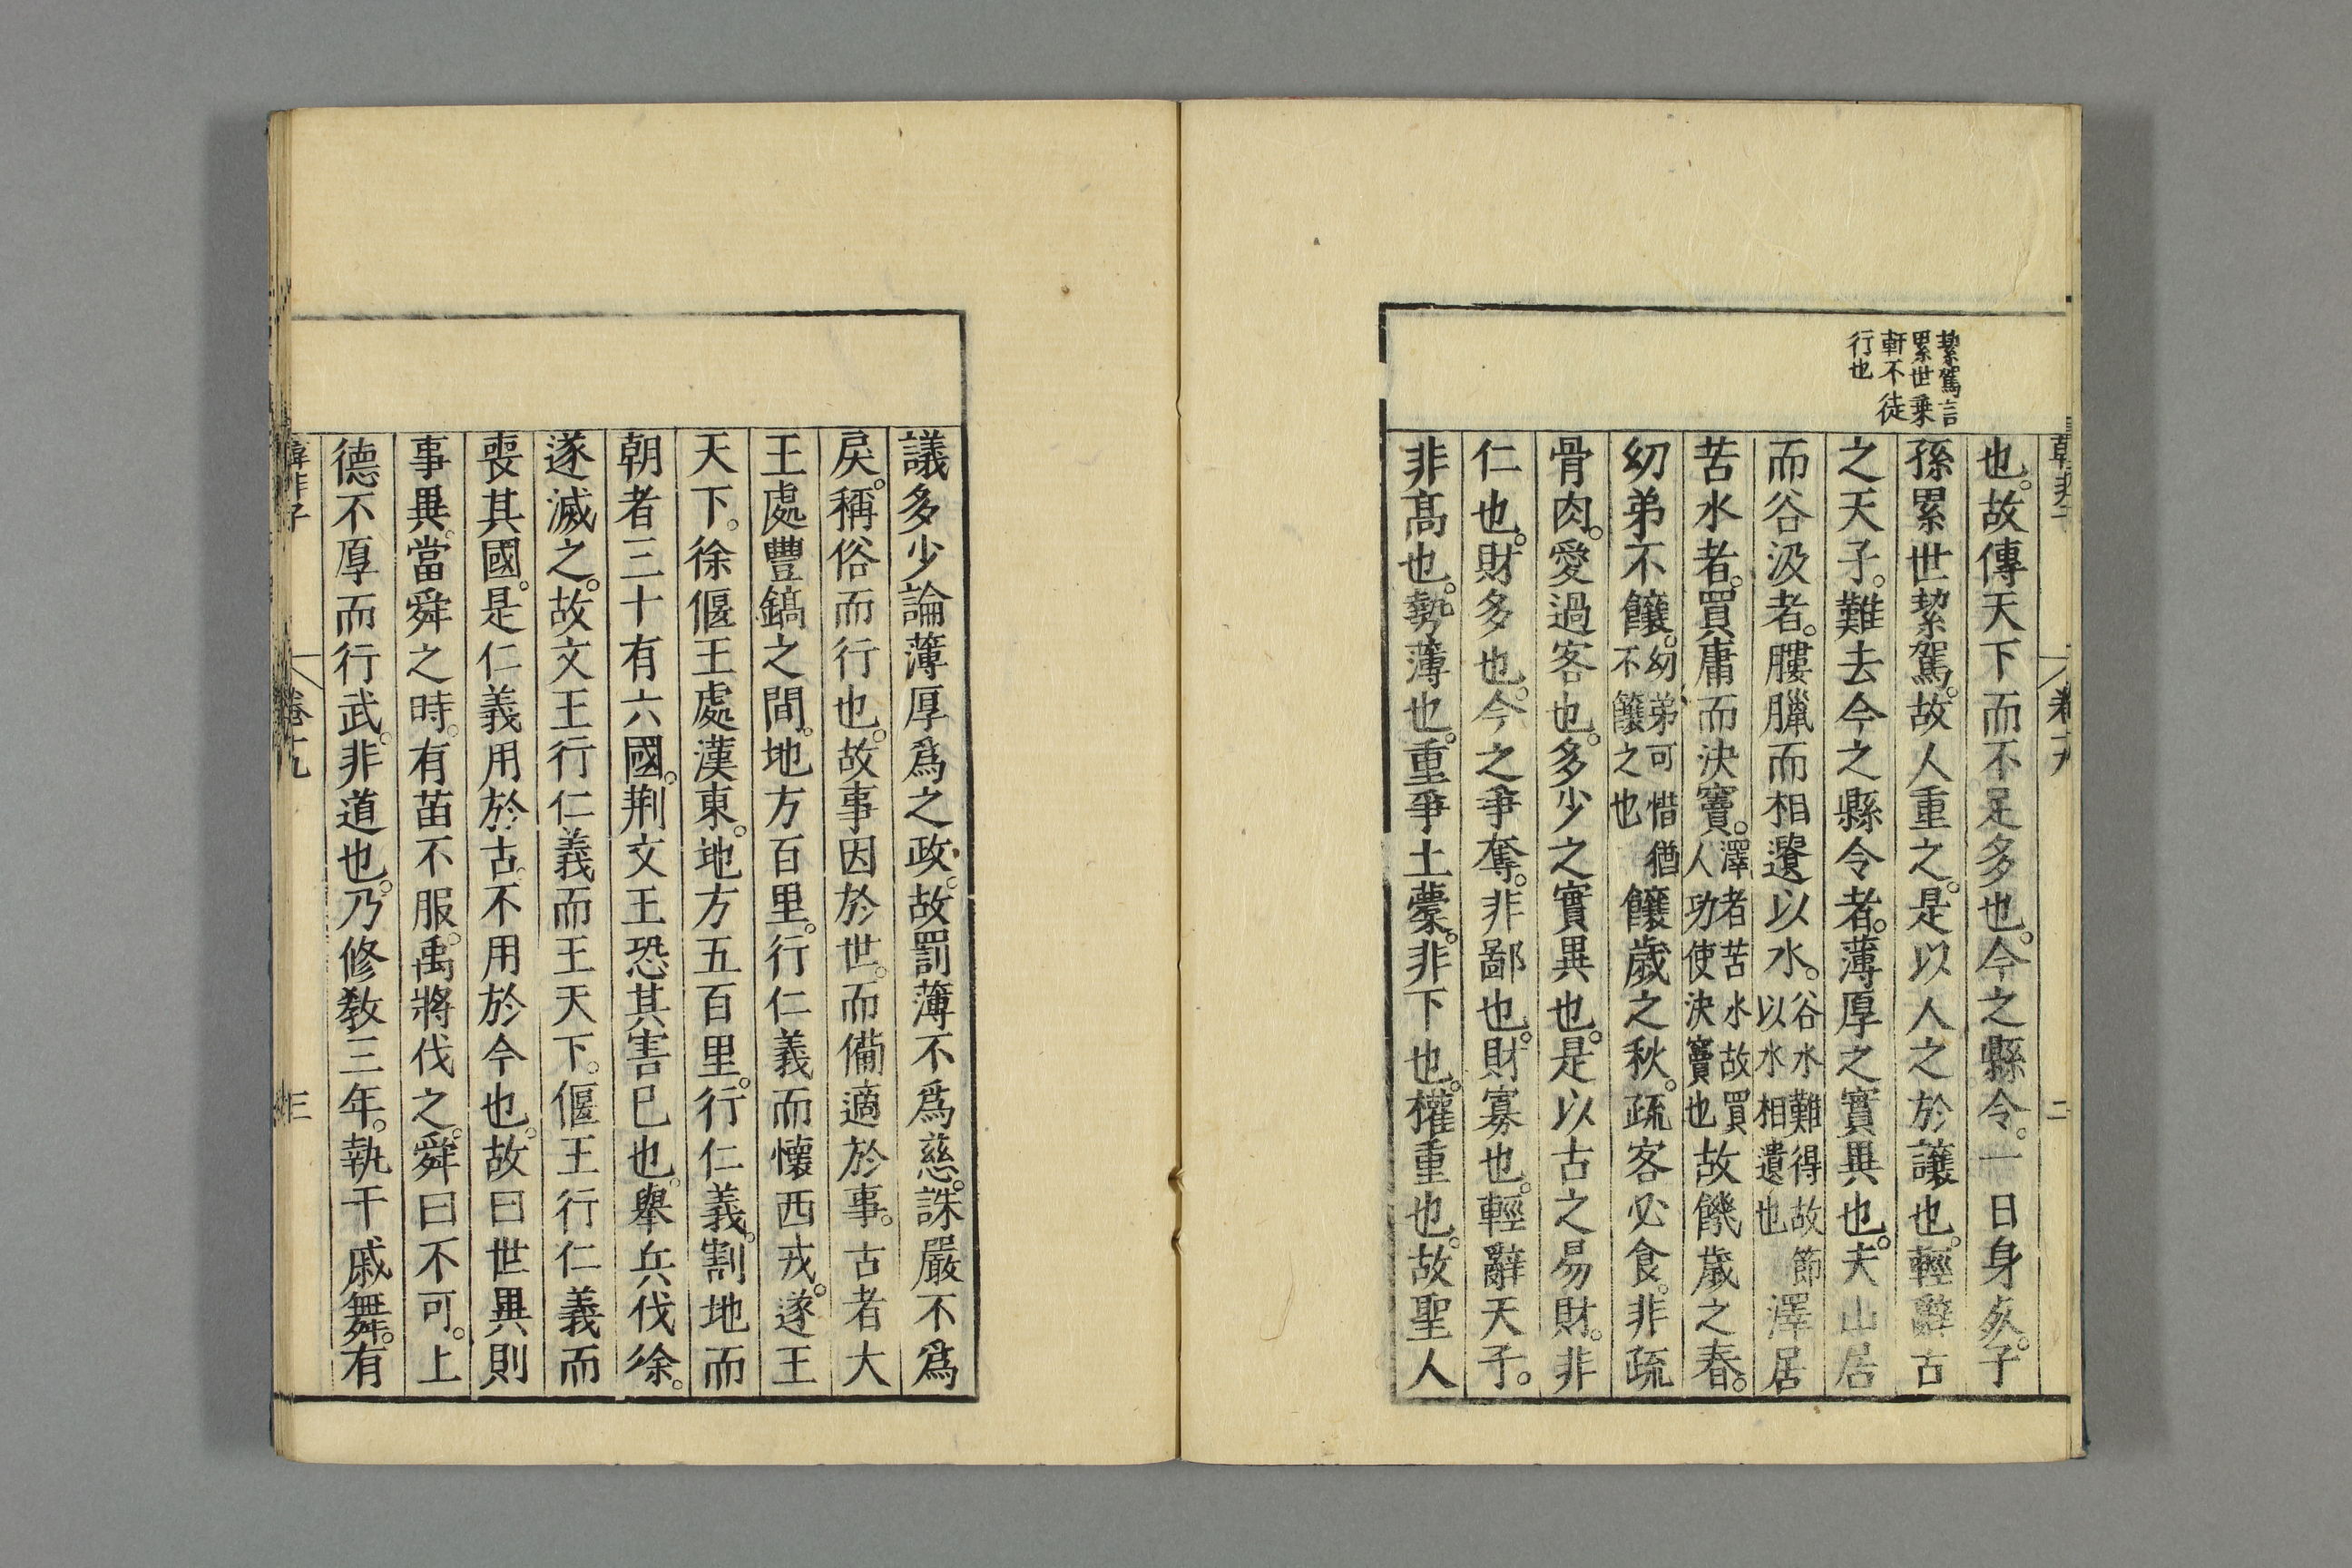 韓非子 卷十九 二
絜駕言
累世乗
軒不徒
行也
也。故傳天下而不足多也。今之縣令。一日身死。子
孫累世絜駕。故人重之。是以人之於讓也。輕辭古
之天子。難去今之縣令者。薄厚之實異也。夫山居
而谷汲者。膢臘而相遺以水。谷水難得故節以水相遺也澤居
苦水者。買庸而決竇。澤者苦水故買人功使決竇也故饑歲之春。
幼弟不饟。幼弟可惜猶不饟之也饟歲之秋。疏客必食。非疏
骨肉。愛過客也。多少之實異也。是以古之易財。非
仁也。財多也。今之爭奪。非鄙也。財寡也。輕辭天子。
非髙也。勢薄也。重爭土槖。非下也。權重也。故聖人
議多少論薄厚爲之政。故罰薄不爲慈。誅嚴不爲
戾。稱俗而行也。故事因於世。而備適於事。古者大
王處豐鎬之間。地方百里。行仁義而懷西戎。遂王
天下。徐偃王處漢東。地方五百里。行仁義。割地而
朝者三十有六國。荆文王恐其害已也。舉兵伐徐。
遂滅之。故文王行仁義而王天下。偃王行仁義而
喪其國。是仁義用於古。不用於今也。故曰世異則
事異。當舜之時。有苗不服。禹將伐之。舜曰不可。上
德不厚而行武。非道也。乃修敎三年。執干戚舞。有
韓非子 卷十九 三